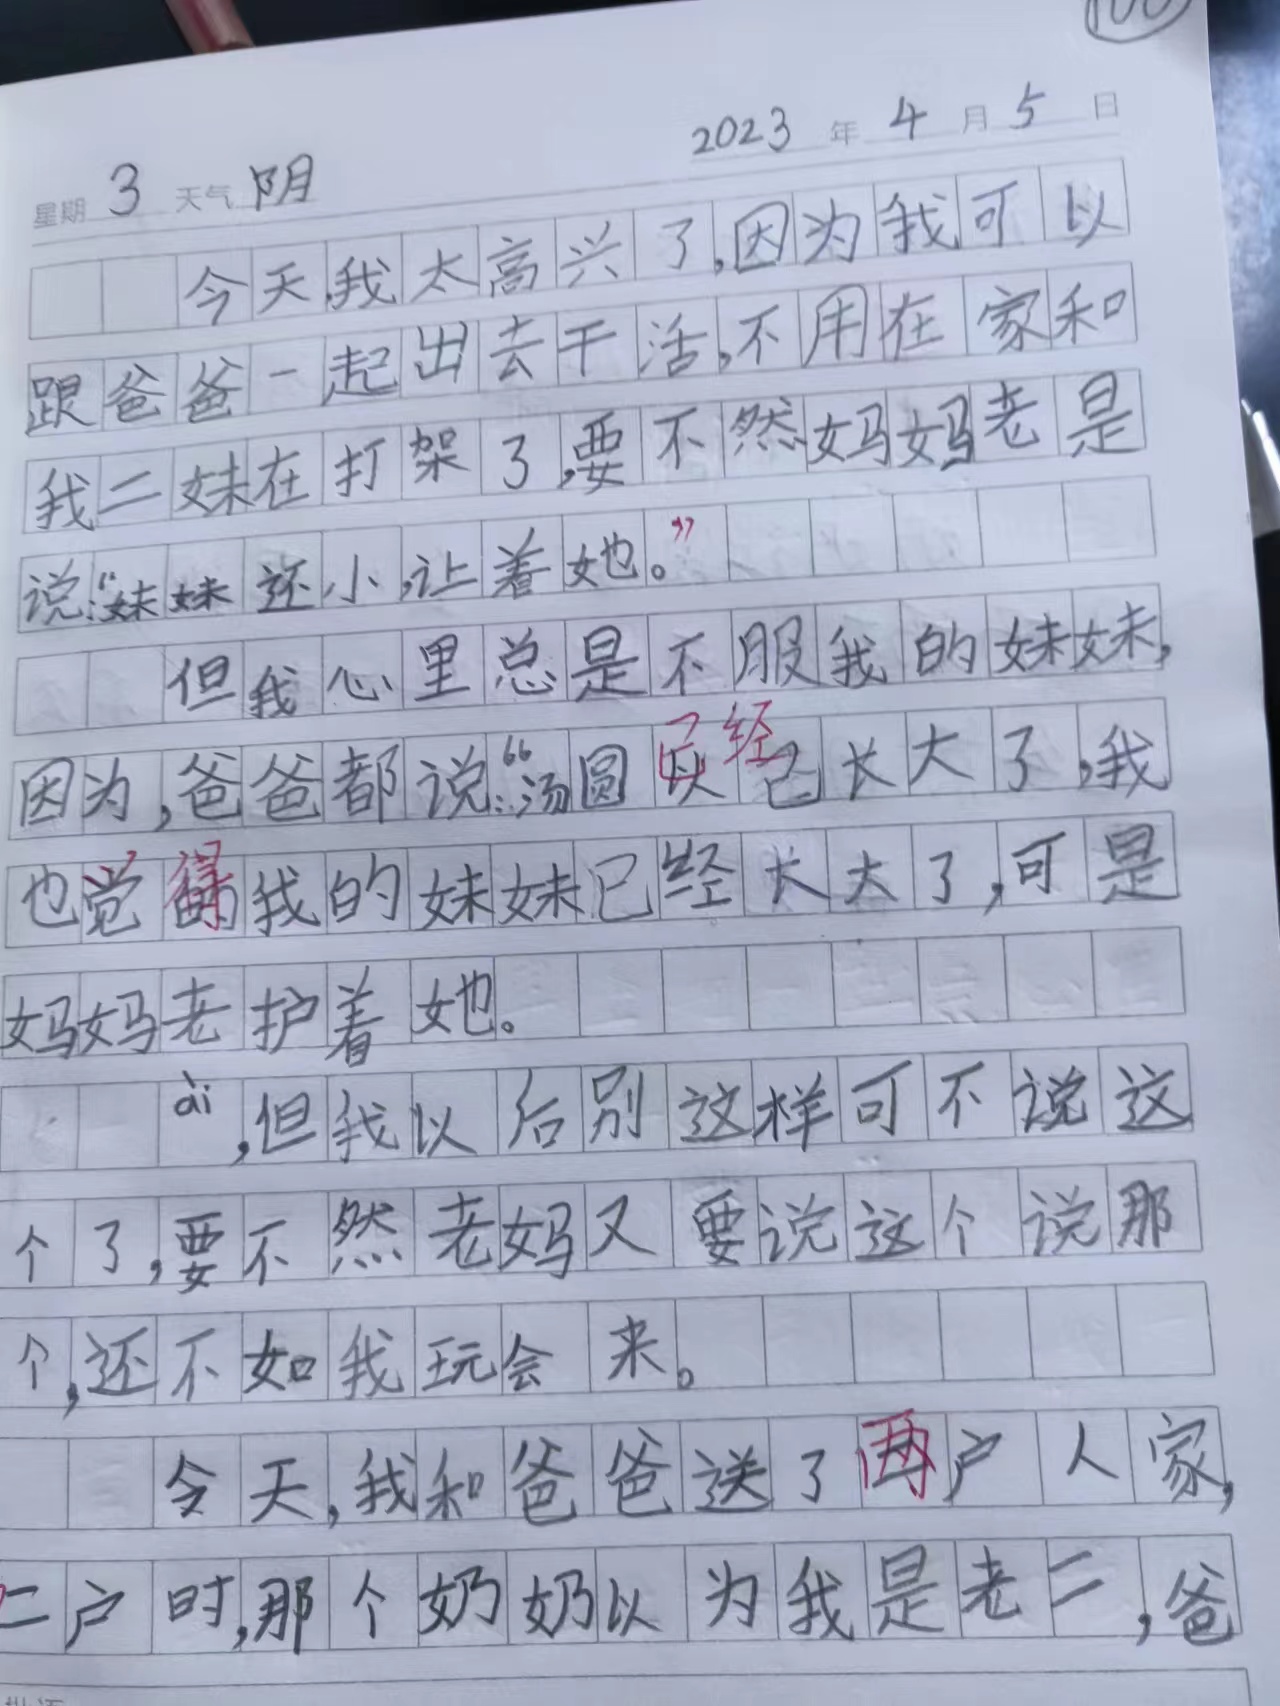 2023 年 4 月 5 日
星期 3 天气 阴
今天,我太高兴了,因为我可以
跟爸爸一起出去干活,不用在家和
我二妹在打架了,要不然妈妈老是
说:“妹妹还小,让着她。”
但我心里总是不服我的妹妹,
因为,爸爸都说:“汤圆 已经 长大了,我
也觉得我的妹妹已经长大了,可是
妈妈老护着她。
ài,但我以后别这样可不说这
个了,要不然老妈又要说这个说那
个,还不如我玩会来。
今天,我和爸爸送了两户人家,
二户时,那个奶奶以为我是老二,爸